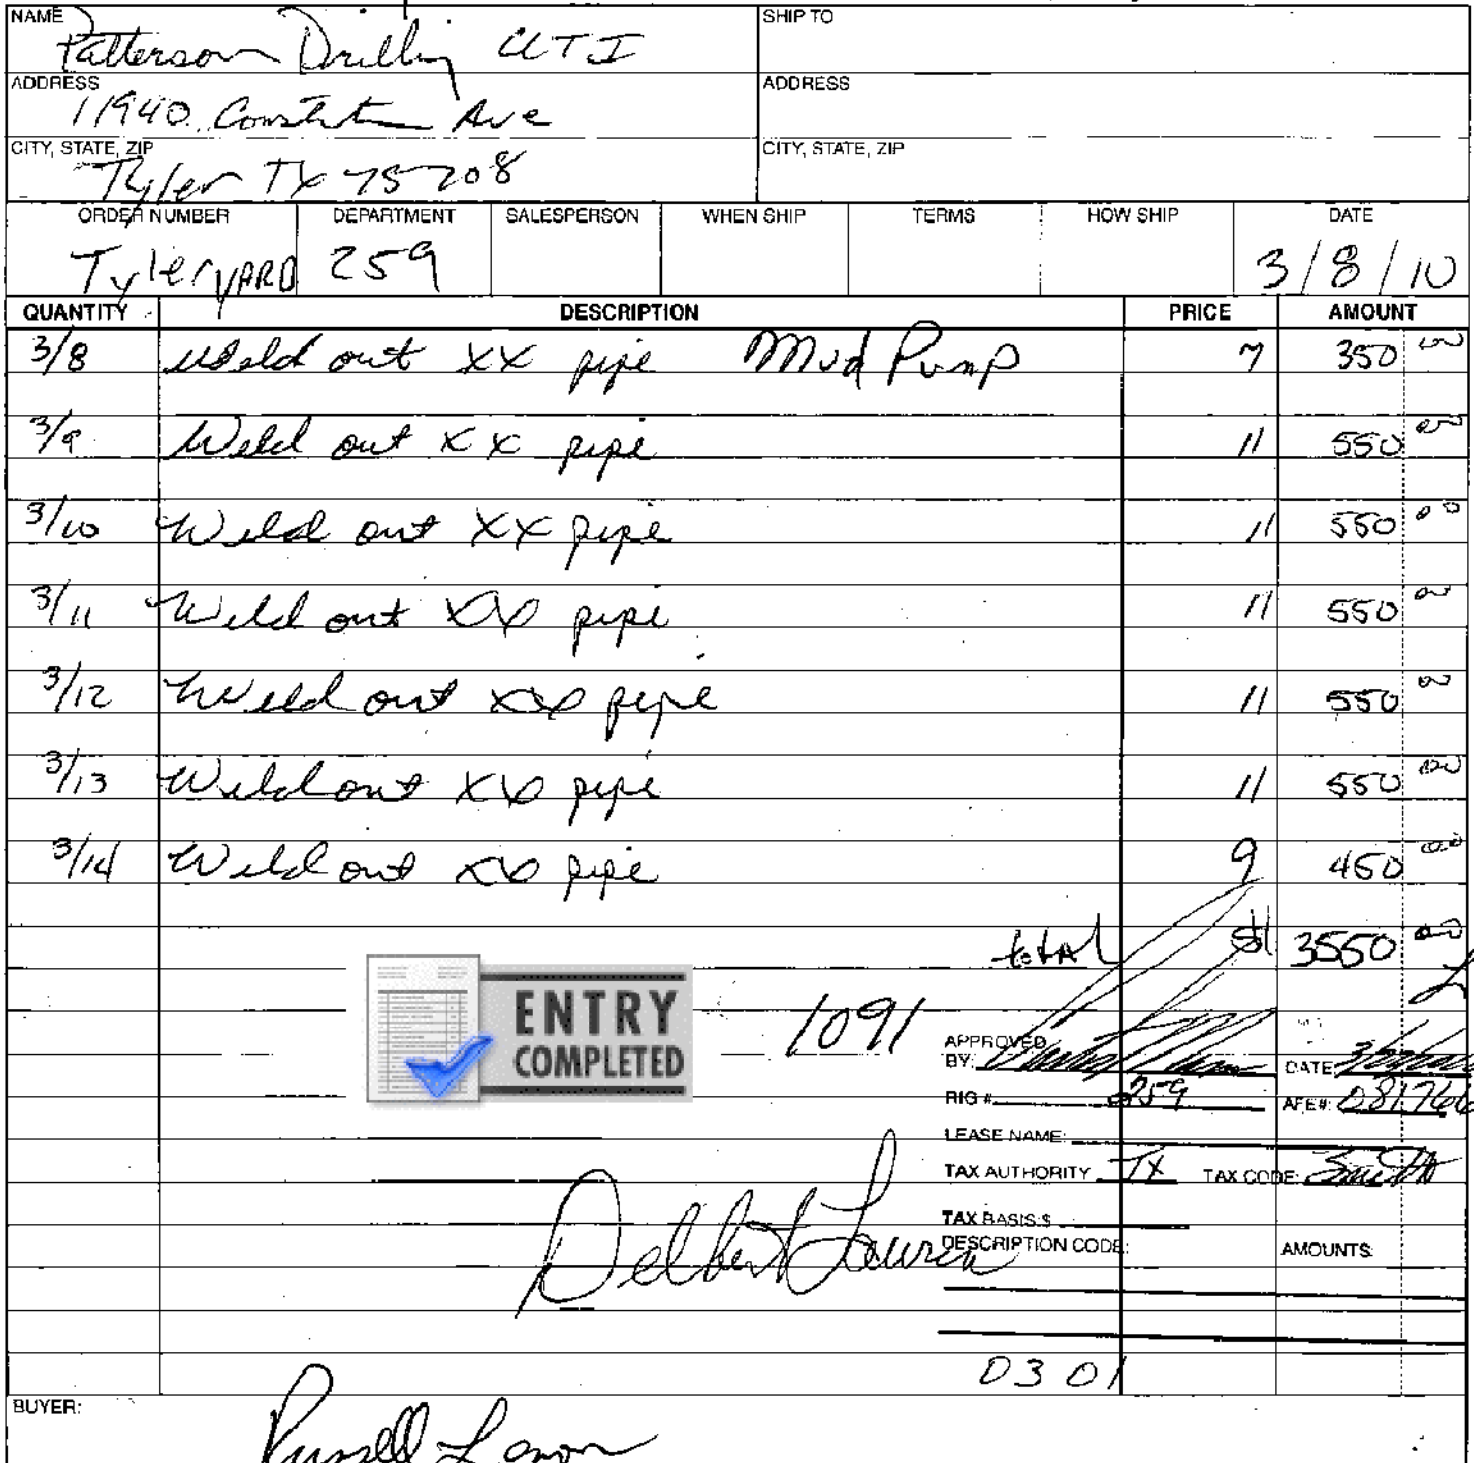 NAME Patterson Drilling UTI SHIP TO
ADDRESS 11940 Constitution Ave ADDRESS
CITY, STATE, ZIP Tyler TX 75708 CITY, STATE, ZIP
ORDER NUMBER DEPARTMENT SALESPERSON WHEN SHIP TERMS HOW SHIP DATE
Tyler YARD 259 3/8/10
QUANTITY DESCRIPTION PRICE AMOUNT
3/8 Weld out XX pipe Mud Pump 7 350 00
3/9 Weld out XX pipe 11 550 00
3/10 Weld out XX pipe 11 550 00
3/11 Weld out XX pipe 11 550 00
3/12 Weld out XX pipe 11 550 00
3/13 Weld out XX pipe 11 550 00
3/14 Weld out XX pipe 9 450 00
total 3550 00
ENTRY
COMPLETED
1091
APPROVED
BY: DATE
RIG #. 259 AFE#: 081766
LEASE NAME:
TAX AUTHORITY TX TAX CODE: Smith
TAX BASIS:$
Delbert
DESCRIPTION CODE: AMOUNTS:
0301
BUYER:
Russell